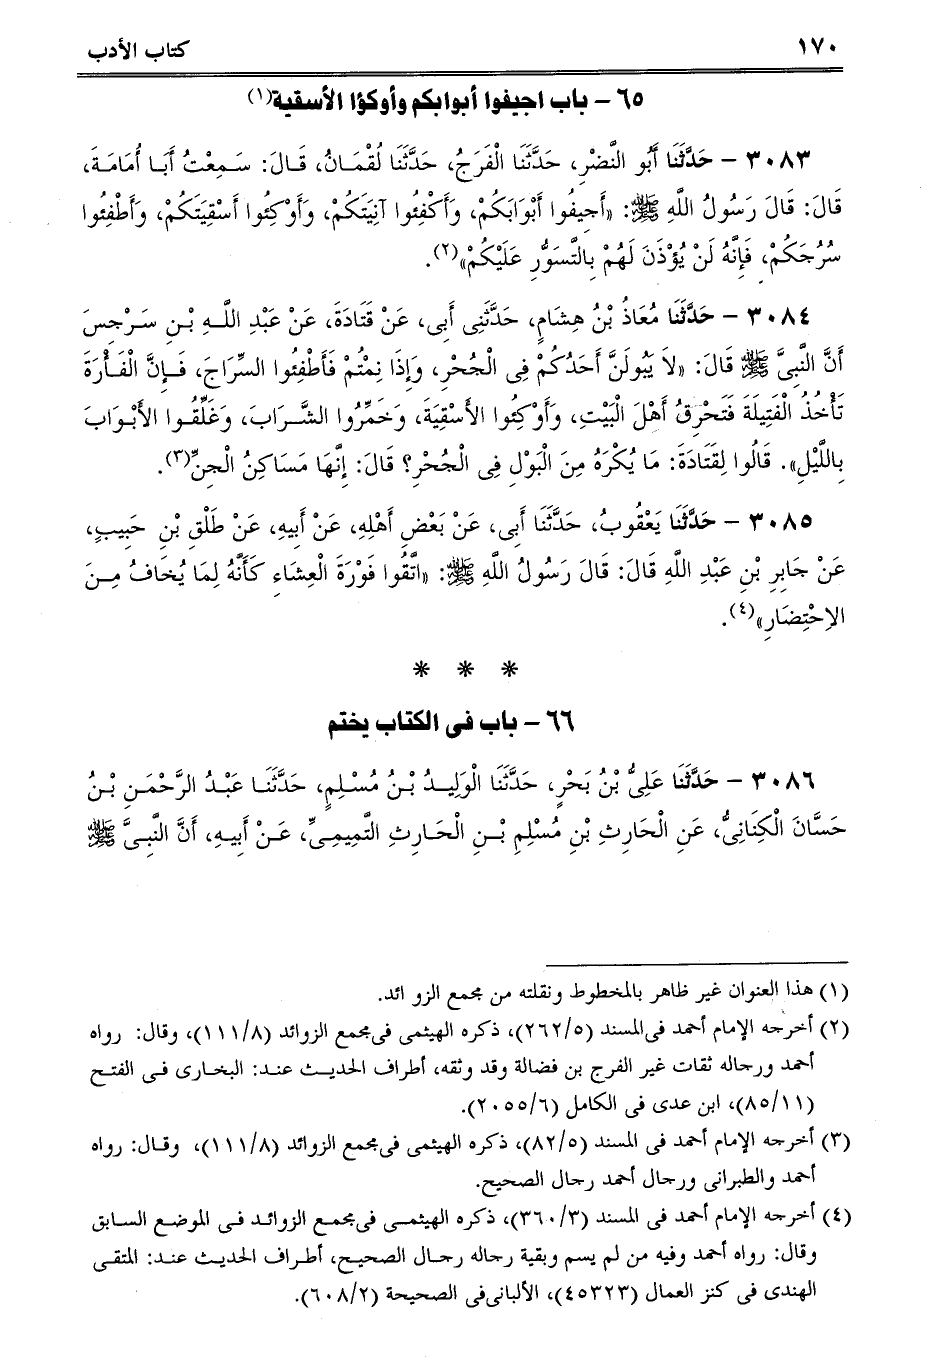 ١٧٠ كتاب الأدب
٦٥ – باب اجيفوا أبوابكم وأوكؤا الأسقية(١)
٣٠٨٣ – حَدَّثَنَا أَبُو النَّضْرِ، حَدَّثَنَا الْفَرَجُ، حَدَّثَنَا لُقْمَانُ، قَالَ: سَمِعْتُ أَبَا أُمَامَةَ،
قَالَ: قَالَ رَسُولُ اللَّهِ ﷺ: «أَجِيفُوا أَبْوَابَكُمْ، وَأَكْفِئُوا آنِيَتَكُمْ، وَأَوْكِئُوا أَسْقِيَتَكُمْ، وَأَطْفِئُوا
سُرُجَكُمْ، فَإِنَّهُ لَنْ يُؤْذَنَ لَهُمْ بِالتَّسَوُّرِ عَلَيْكُمْ»(٢).
٣٠٨٤ – حَدَّثَنَا مُعَاذُ بْنُ هِشَامٍ، حَدَّثَنِى أَبِى، عَنْ قَتَادَةَ، عَنْ عَبْدِ اللَّهِ بْنِ سَرْجِسَ
أَنَّ النَّبِىَّ ﷺ قَالَ: «لاَ يَبُولَنَّ أَحَدُكُمْ فِى الْجُحْرِ، وَإِذَا نِمْتُمْ فَأَطْفِئُوا السِّرَاجَ، فَإِنَّ الْفَأْرَةَ
تَأْخُذُ الْفَتِيلَةَ فَتَحْرِقُ أَهْلَ الْبَيْتِ، وَأَوْكِئُوا الأَسْقِيَةَ، وَخَمِّرُوا الشَّرَابَ، وَغَلِّقُوا الأَبْوَابَ
بِاللَّيْلِ». قَالُوا لِقَتَادَةَ: مَا يُكْرَهُ مِنَ الْبَوْلِ فِى الْجُحْرِ؟ قَالَ: إِنَّهَا مَسَاكِنُ الْجِنِّ(٣).
٣٠٨٥ – حَدَّثَنَا يَعْقُوبُ، حَدَّثَنَا أَبِى، عَنْ بَعْضِ أَهْلِهِ، عَنْ أَبِيهِ، عَنْ طَلْقِ بْنِ حَبِيبٍ،
عَنْ جَابِرِ بْنِ عَبْدِ اللَّهِ قَالَ: قَالَ رَسُولُ اللَّهِ ﷺ: «اتَّقُوا فَوْرَةَ الْعِشَاءِ كَأَنَّهُ لِمَا يُخَافُ مِنَ
الاِحْتِضَارِ»(٤).
* * *
٦٦ – باب فى الكتاب يختم
٣٠٨٦ – حَدَّثَنَا عَلِىُّ بْنُ بَحْرٍ، حَدَّثَنَا الْوَلِيدُ بْنُ مُسْلِمٍ، حَدَّثَنَا عَبْدُ الرَّحْمَنِ بْنُ
حَسَّانَ الْكِنَانِىُّ، عَنِ الْحَارِثِ بْنِ مُسْلِمِ بْنِ الْحَارِثِ التَّمِيمِىِّ، عَنْ أَبِيهِ، أَنَّ النَّبِىَّ ﷺ
(١) هذا العنوان غير ظاهر بالمخطوط ونقلته من مجمع الزوائد.
(٢) أخرجه الإمام أحمد فى المسند (٢٦٢/٥)، ذكره الهيثمى فى مجمع الزوائد (١١١/٨)، وقال: رواه
أحمد ورجاله ثقات غير الفرج بن فضالة وقد وثقه، أطراف الحديث عند: البخارى فى الفتح
(٨٥/١١)، ابن عدى فى الكامل (٢٠٥٥/٦).
(٣) أخرجه الإمام أحمد فى المسند (٨٢/٥)، ذكره الهيثمى فى مجمع الزوائد (١١١/٨)، وقال: رواه
أحمد والطبرانى ورجال أحمد رجال الصحيح.
(٤) أخرجه الإمام أحمد فى المسند (٣٦٠/٣)، ذكره الهيثمى فى مجمع الزوائد فى الموضع السابق
وقال: رواه أحمد وفيه من لم يسم وبقية رجاله رجال الصحيح، أطراف الحديث عند: المتقى
الهندى فى كنز العمال (٤٥٣٢٣)، الألبانى فى الصحيحة (٦٠٨/٢).